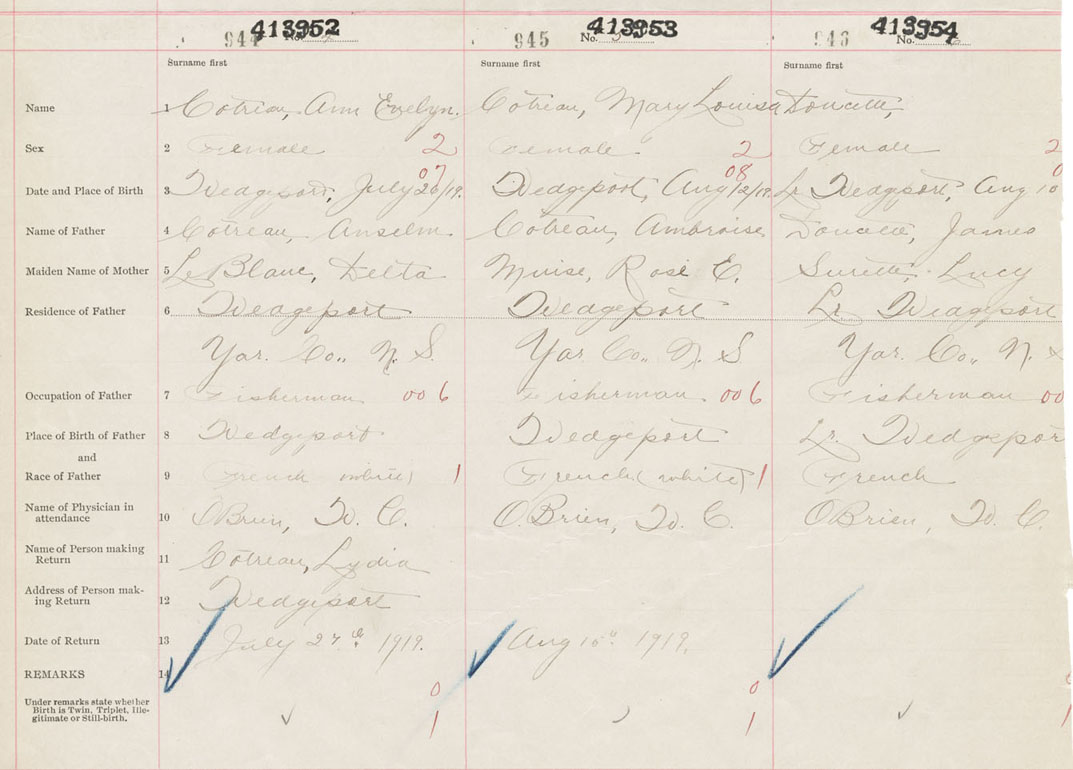 413952 413953 413954
944 No. 945 No. 946 No.
Surname first Surname first Surname first
Name 1 Cotreau, Ann Evelyn. Cotreau, Mary Louisa Doucette,
Sex 2 Female 2 Female. 2 Female 2
07 08 0
Date and Place of Birth 3 Wedgeport, July 20/19. Wedgeport, Aug 12/19. Lr Wedgeport, Aug 10
Name of Father 4 Cotreau, Anselm. Cotreau, Ambroise Doucette, James
Maiden Name of Mother 5 LeBlanc, Delta Muise, Rose E. Surette, Lucy
Residence of Father 6 Wedgeport Wedgeport Lr. Wedgeport
Yar. Co., N. S. Yar. Co., N. S Yar. Co., N. S
Occupation of Father 7 Fisherman 006 Fisherman 006 Fisherman 00
Place of Birth of Father 8 Wedgeport Wedgeport Lr. Wedgepor
and
Race of Father 9 French (white) 1 French (white) 1 French
Name of Physician in
attendance 10 O'Brien, W. C. O'Brien, W. C. O'Brien, W. C.
Name of Person making
Return 11 Cotreau, Lydia
Address of Person mak-
ing Return 12 Wedgeport
Date of Return 13 July 27th 1919. Aug 15" 1919.
REMARKS 14
0 0
Under remarks state whether
Birth is Twin, Triplet, Ille-
gitimate or Still-birth. 1 1 1